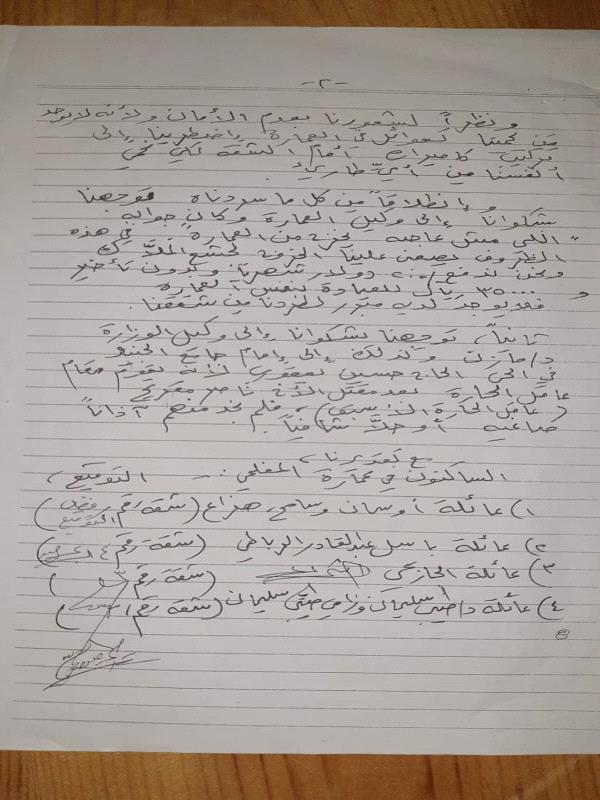 -٢-
ونظراً لشعورنا بعدم الأمان ولأنه لا يوجد
من يحمينا كعوائل في العمارة واضطرينا إلى
تركيب كاميرات أمام الشقة لكي نحمي
أنفسنا من أي طارئ.
وإنطلاقاً من كل ما سردناه توجهنا
بشكوانا إلى وكيل العمارة وكان جوابه
"اللي مش عاجبه يخرج من العمارة". في هذه
الظروف يصعب علينا الخروج لجشع الملاك
ونحن ندفع دولار شهرياً وبدون تأخير
و ٣٥٠٠٠٠ ريال للعيادة بنفس العمارة
فلا يوجد لديه مبرر لطردنا من شققنا.
ثانياً، توجهنا بشكوانا إلى وكيل الوزارة
د/مازن وكذلك إلى إمام جامع
في الحي الحاج حسين يعقوب لأنه يقوم مقام
عاقل الحارة بعد مقتل الأخ ناصر
(عاقل الحارة الأسبق)، فلم نجد منهم آذاناً
صاغية أو حلاً شافياً.
مع تقديرنا،
الساكنون في عمارة المفلحي:- التوقيع،
١) عائلة أوسان وسامي هزاع (شقة رقم رفض التوقيع)
٢) عائلة باسل عبدالقادر الرباطي (شقة رقم ٤)
٣) عائلة الحازمي (شقة رقم ٣)
٤) عائلة د/صيب سليمان ورامي سليمان (شقة رقم)